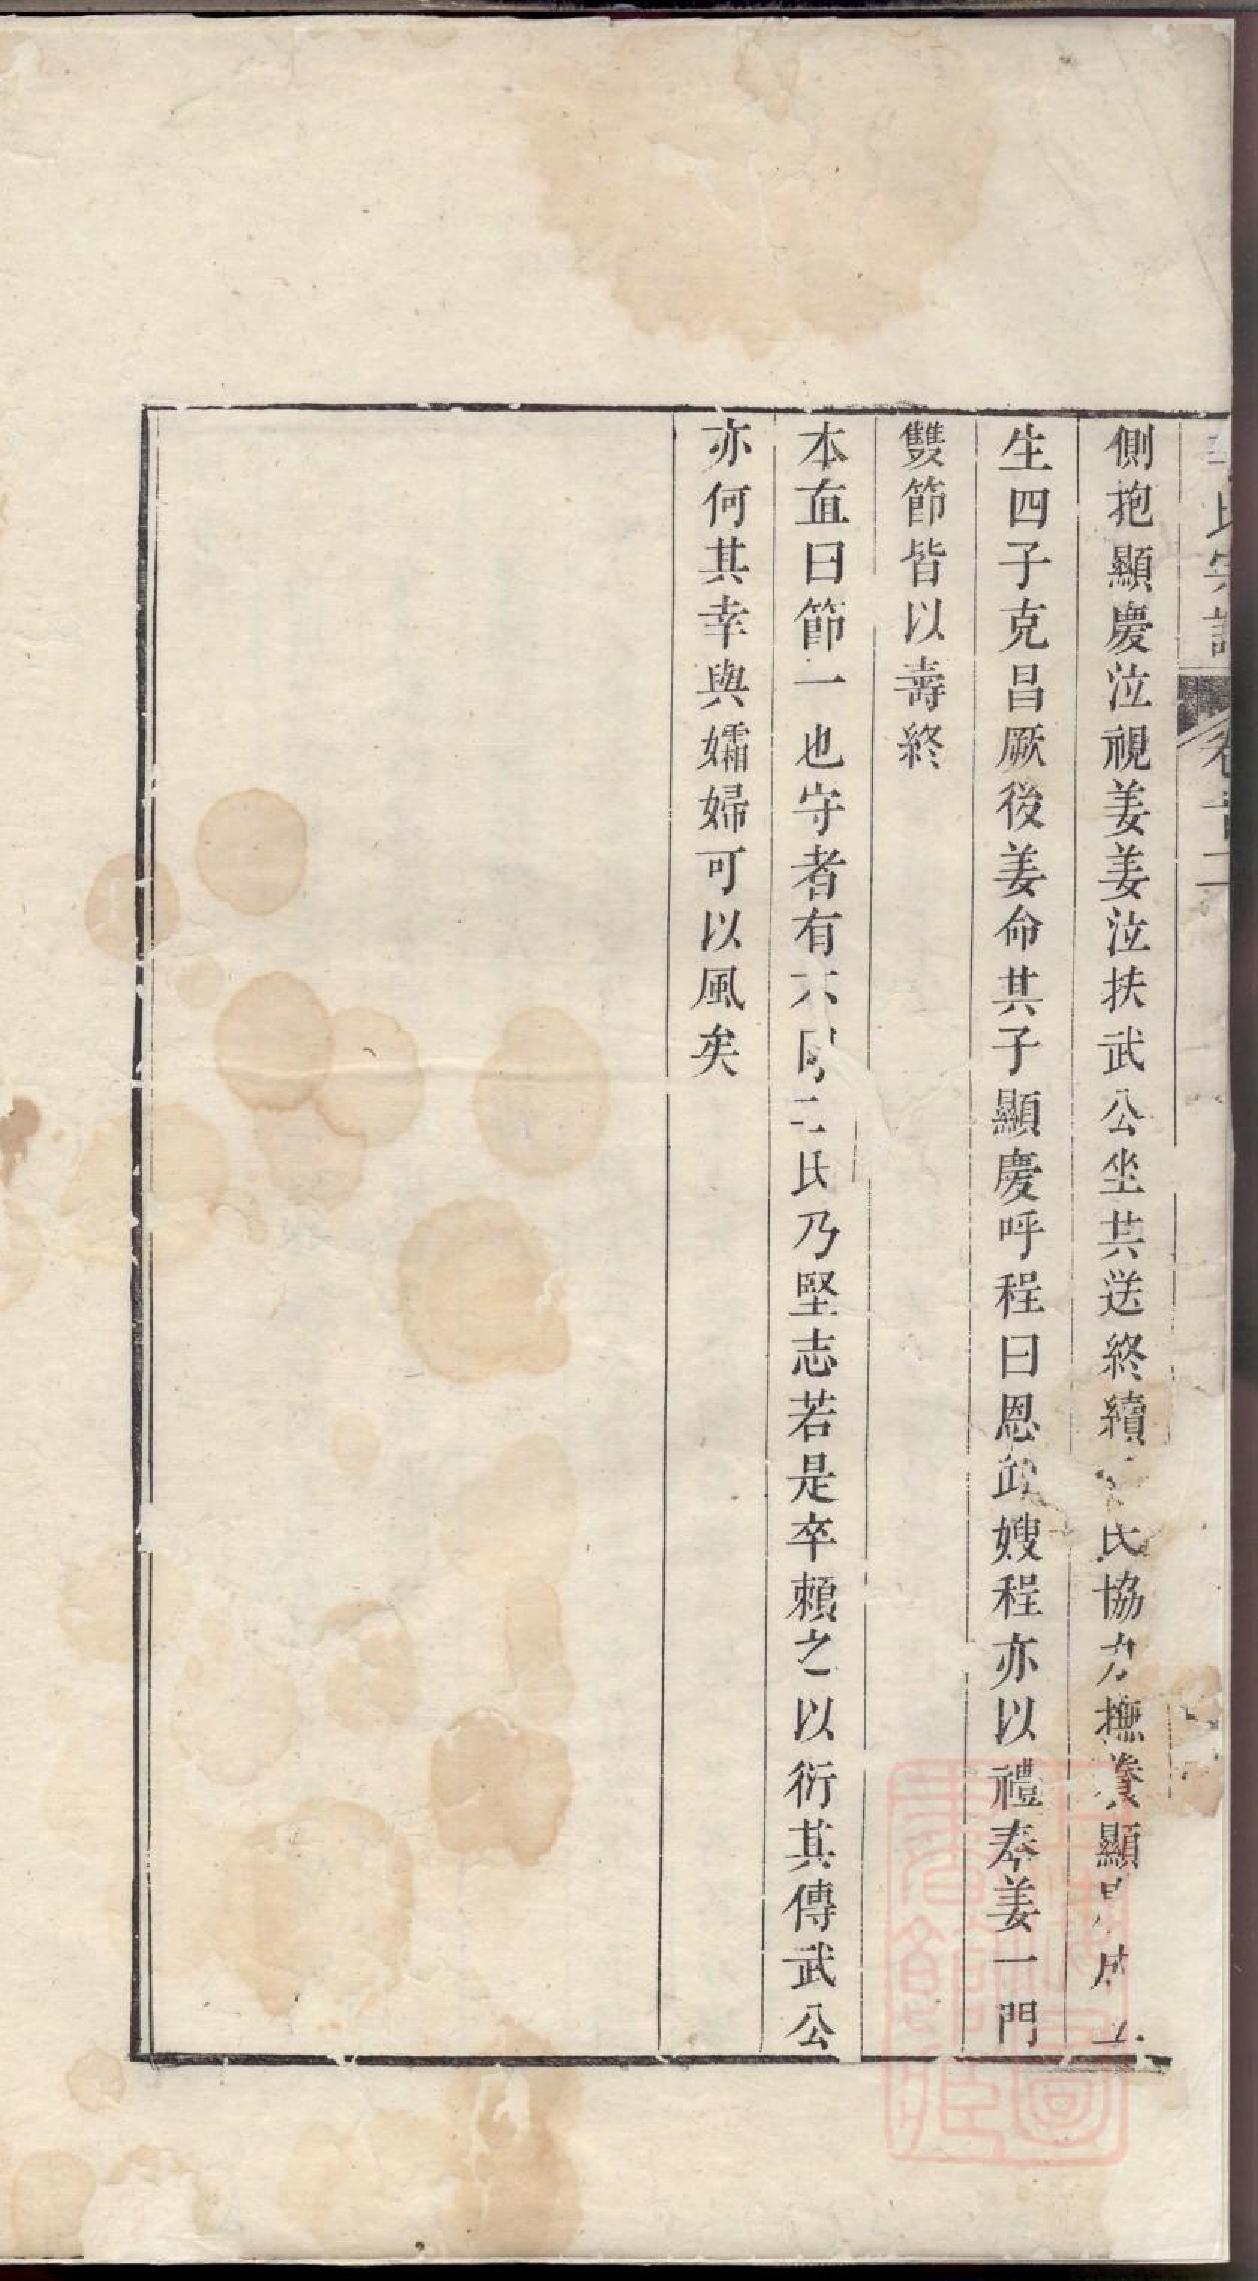 氏宗譜 卷首二
側抱顯慶泣視姜姜泣扶武公坐共送終續氏協力撫養顯成
生四子克昌厥後姜命其子顯慶呼程曰恩武嫂程亦以禮奉姜一門
雙節皆以壽終
本直曰節一也守者有不同二氏乃堅志若是卒賴之以衍其傳武公
亦何其幸與孀婦可以風矣